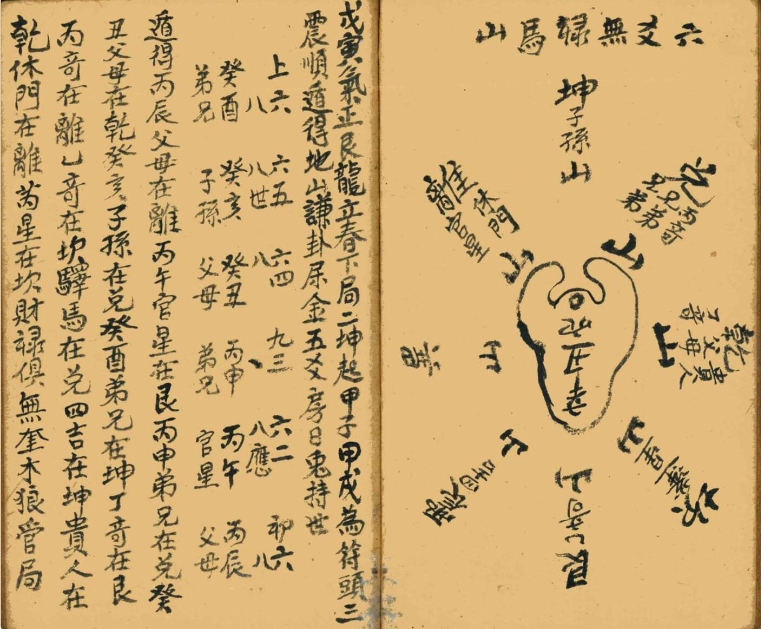 六爻無禄馬山
坤子孫山
兌丙奇
兄弟
山
休門
離官星
山
乾貴人
父母
山
巽
山
山
山
艮
戊寅氣正艮龍立春下局二坤起甲子甲戌為符頭三
震順遁得地山謙卦屬金五爻房日兎持世
上六 六五 六四 九三 六二 初六
八 八世 八 、 八應 八
癸酉 癸亥 癸丑 丙申 丙午 丙辰
弟兄 子孫 父母 弟兄 官星 父母
遁得丙辰父母在離丙午官星在艮丙申弟兄在兌癸
丑父母在乾癸亥子孫在兌癸酉弟兄在坤丁奇在艮
丙奇在離乙奇在坎驛馬在兌四吉在坤貴人在
乾休門在離芮星在坎財禄俱無奎木狼管局